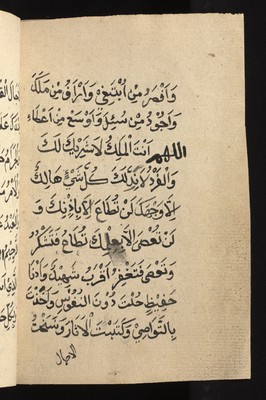 وَانْصَرُ مَنْ ابْتُغِيَ وَاَرْاَفُ مَنْ مَلَكَ
وَاَجْوَدُ مَنْ سُئِلَ وَاَوْسَعُ مَنْ اَعْطَاءَ
اللهم اَنْتَ الْمَلِكُ لَاشَرِيْكَ لَكَ
وَالْفَرْدُ لَانِدَّلَكَ كُلُّ شَيْءٍ هَالِكٌ
اِلَّاوَجْهَكَ لَنْ تُطَاعَ اِلَّابِاِذْنِكَ وَ
لَنْ تُعْصٰى اِلَّابِعِلْمِكَ تُطَاعُ فَتَشْكُرُ
وَتُعْصٰى فَتَغْفِرُ اَقْرَبُ شَهِيْدٍ وَاَدْنَا
حَفِيْظٍ حُلْتَ دُوْنَ النُّفُوْسِ وَاَخَذْتَ
بِالنَّوَاصِيْ وَكَتَبْتَ الْاٰثَارَ وَنَسَخْتَ
الاجال